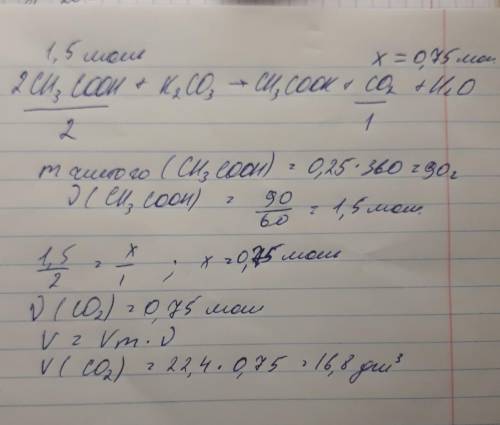 1,5 моль x = 0,75 мол
2CH₃COOH + K₂CO₃ → CH₃COOK + CO₂ + H₂O
2 1
m чистого (CH₃COOH) = 0,25·360 = 90г
ν(CH₃COOH) = 90/60 = 1,5 моль
1,5/2 = x/1 ; x = 0,75 моль
ν(CO₂) = 0,75 моль
V = Vm·ν
V(CO₂) = 22,4·0,75 = 16,8 дм³